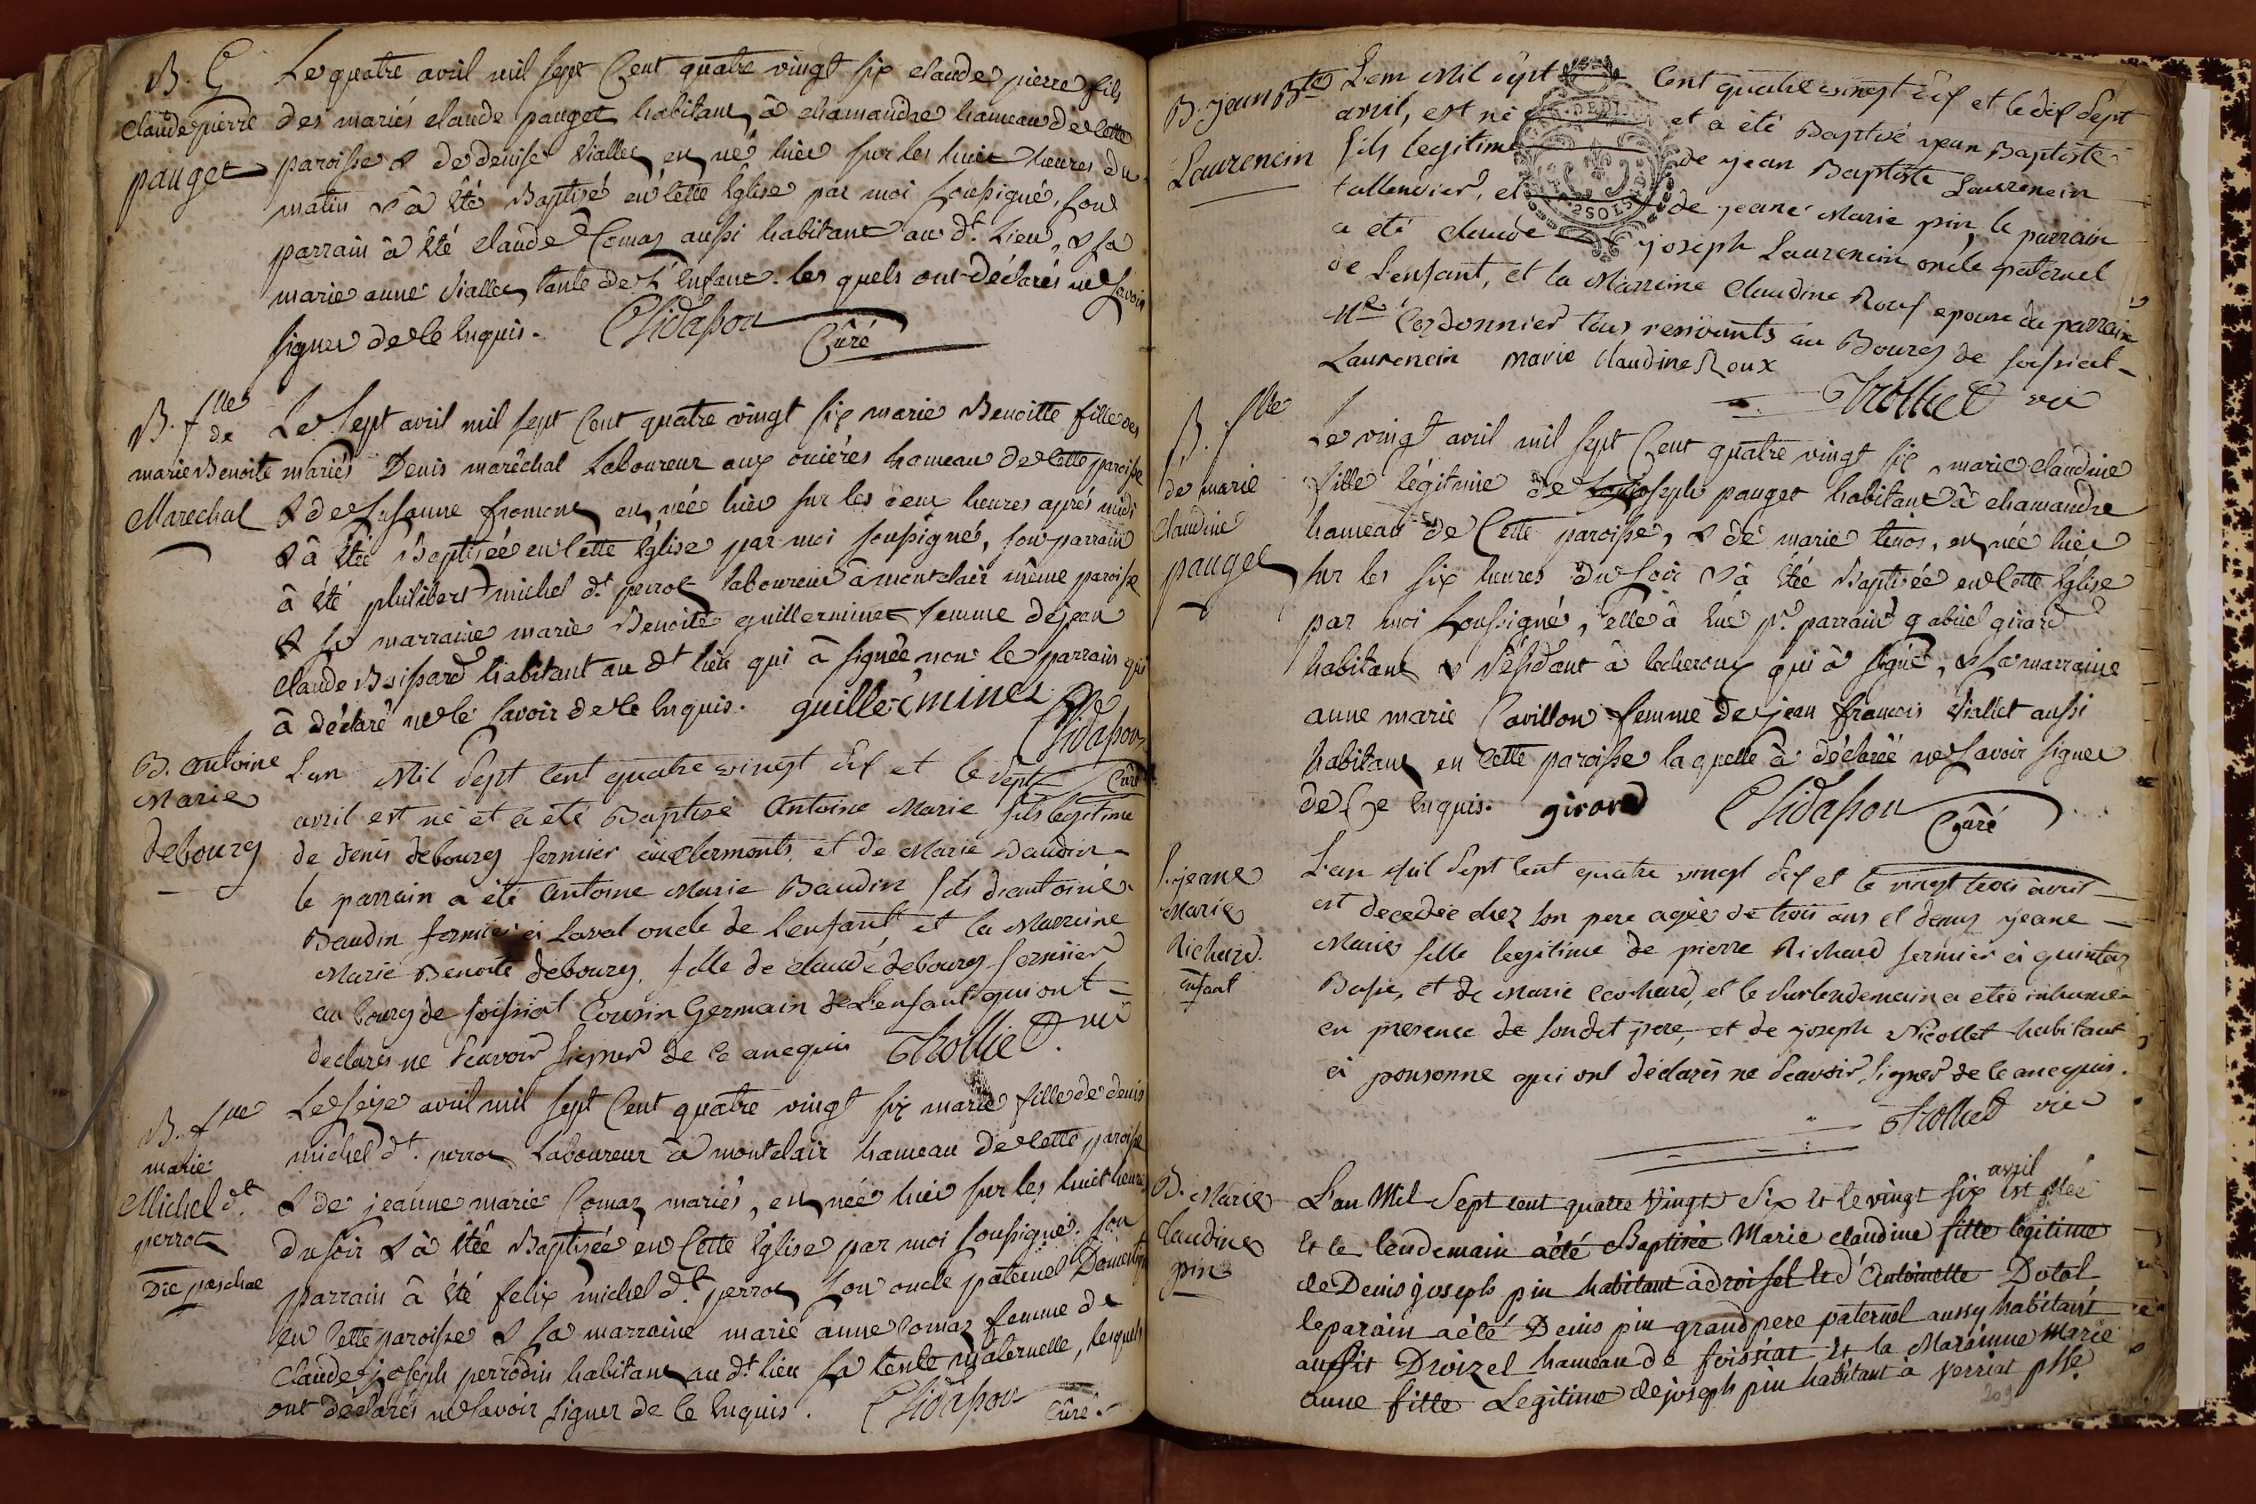 B. C
claude pierre
pauget
Le quatre avril mil sept Cent quatre vingt six claude pierre fils
des mariés claude pauget habitant à chamandre hameau de cette
paroisse & de denise viallet est né hier sur les huit heures du
matin & à été Baptisé en cette Eglise par moi soussigné, son
parrain à été claude Comas aussi habitant au dt. Lieu, & la
marie anne viallet tante de L'Enfant. les quels ont déclarés ne savoir
signer de ce Enquis. Chidasson
Curé
B. flle
de
marie Benoite
Marechal
Le sept avril mil sept Cent quatre vingt six marie Benoitte fille des
mariés Denis maréchal Laboureur aux ouiéres hameau de cette paroisse
& de susanne fromont est née hier sur les deux heures aprés midi
& à étée Baptisée en cette Eglise par moi soussigné, son parrain
à été philibert michel dt. perrot laboureur à montclair même paroisse
& la marraine marie Benoite guilleminet femme de jean
claude Buissard habitant au dt lieu qui à signée non le parrain qui
à déclaré ne le savoir de ce Enquis. guilleminet
Chidasson
Curé
B. antoine
Marie
debourg
L'an Mil Sept Cent quatre vingt six et le sept
avril est né et a été Baptisé Antoine Marie fils légitime
de denis debourg fermier aux clermonts et de Marie Baudin
le parrain a été antoine Marie Baudin fils d'antoine
Baudin fermier à Laval oncle de L'enfant et la Marreine
Marie Benoite debourg fille de claude debourg fermier
au bourg de foissiat Cousin Germain de L'enfant qui ont
declarés ne scavoir signer de ce anequis Trolliet vic
B. flle
marie
Michel dt.
perrot
Die paschae
Le seize avril mil sept Cent quatre vingt six marie fille de denis
michel dt. perrot Laboureur à montclair hameau de cette paroisse
& de jeanne marie Comas mariés, est née hier sur les huit heures
du soir & à étée Baptisée en Cette Eglise par moi soussigné. son
parrain à été felix michel dt. perrot son oncle paternel Domestique
en cette paroisse & la marraine marie anne Comas femme de
claude joseph perrodin habitant au dt lieu sa tente maternelle, lesquels
ont déclarés ne savoir signer de ce Enquis. Chidasson
Curé
B. jean Bte
Laurencin
L'an Mil sept Cent quatre vingt six et le dix sept
avril, est né et a été Baptisé jean Baptiste
fils legitime de jean Baptiste Laurencin
taillendier, et de jeane Marie pin le parrain
a été claude joseph Laurencin oncle paternel
de L'enfant, et la Marreine Claudine Rouf epouse du parrain
Me Cordonnier tous residants au Bourg de foissiat
Laurencin marie Claudine Roux
Trolliet vic
B. flle
de marie
claudine
pauget
Le vingt avril mil sept Cent quatre vingt six marie claudine
fille légitime de joseph pauget habitant à chamandre
hameau de Cette paroisse, & de marie tenos, est née hier
sur les six heures du soir & à étée Baptisée en Cette Eglise
par moi soussigné, elle à Eue pr. parrain gabriel girard
habitant & résidant à lecheroux qui à signé, & La marraine
anne marie Cavillon femme de jean francois Viallet aussi
habitant en Cette paroisse laquelle à déclarée ne savoir signer
de Ce Enquis. girard Chidasson
Curé
S. jeane
Marie
Richard.
enfant
L'an Mil Sept Cent quatre vingt six et le vingt trois avril
est decedée chez son pere agée de trois ans et demy jeane
Marie fille legitime de pierre Richard fermier à quintas
Basse, et de Marie Cochard, et le surlendemain a etée inhumée
en presence de son dit pere, et de joseph Nicollet habitant
à ponsonne qui ont déclarés ne scavoir signer de ce anequis.
Trolliet vic
B. Marie
Claudine
pin
L'an Mil Sept cent quatre Vingt Six et le vingt six avril est Née
et le lendemain a été Baptisée Marie claudine fille legitime
de Denis joseph pin habitant à droisel et d'Antoinette Dotal
le parain a été Denis pin grand pere paternel aussy habitant
audit Droizel hameau de foissiat et la Marainne Marie
anne fille Legitime de joseph pin habitant à Verriat psse.
209